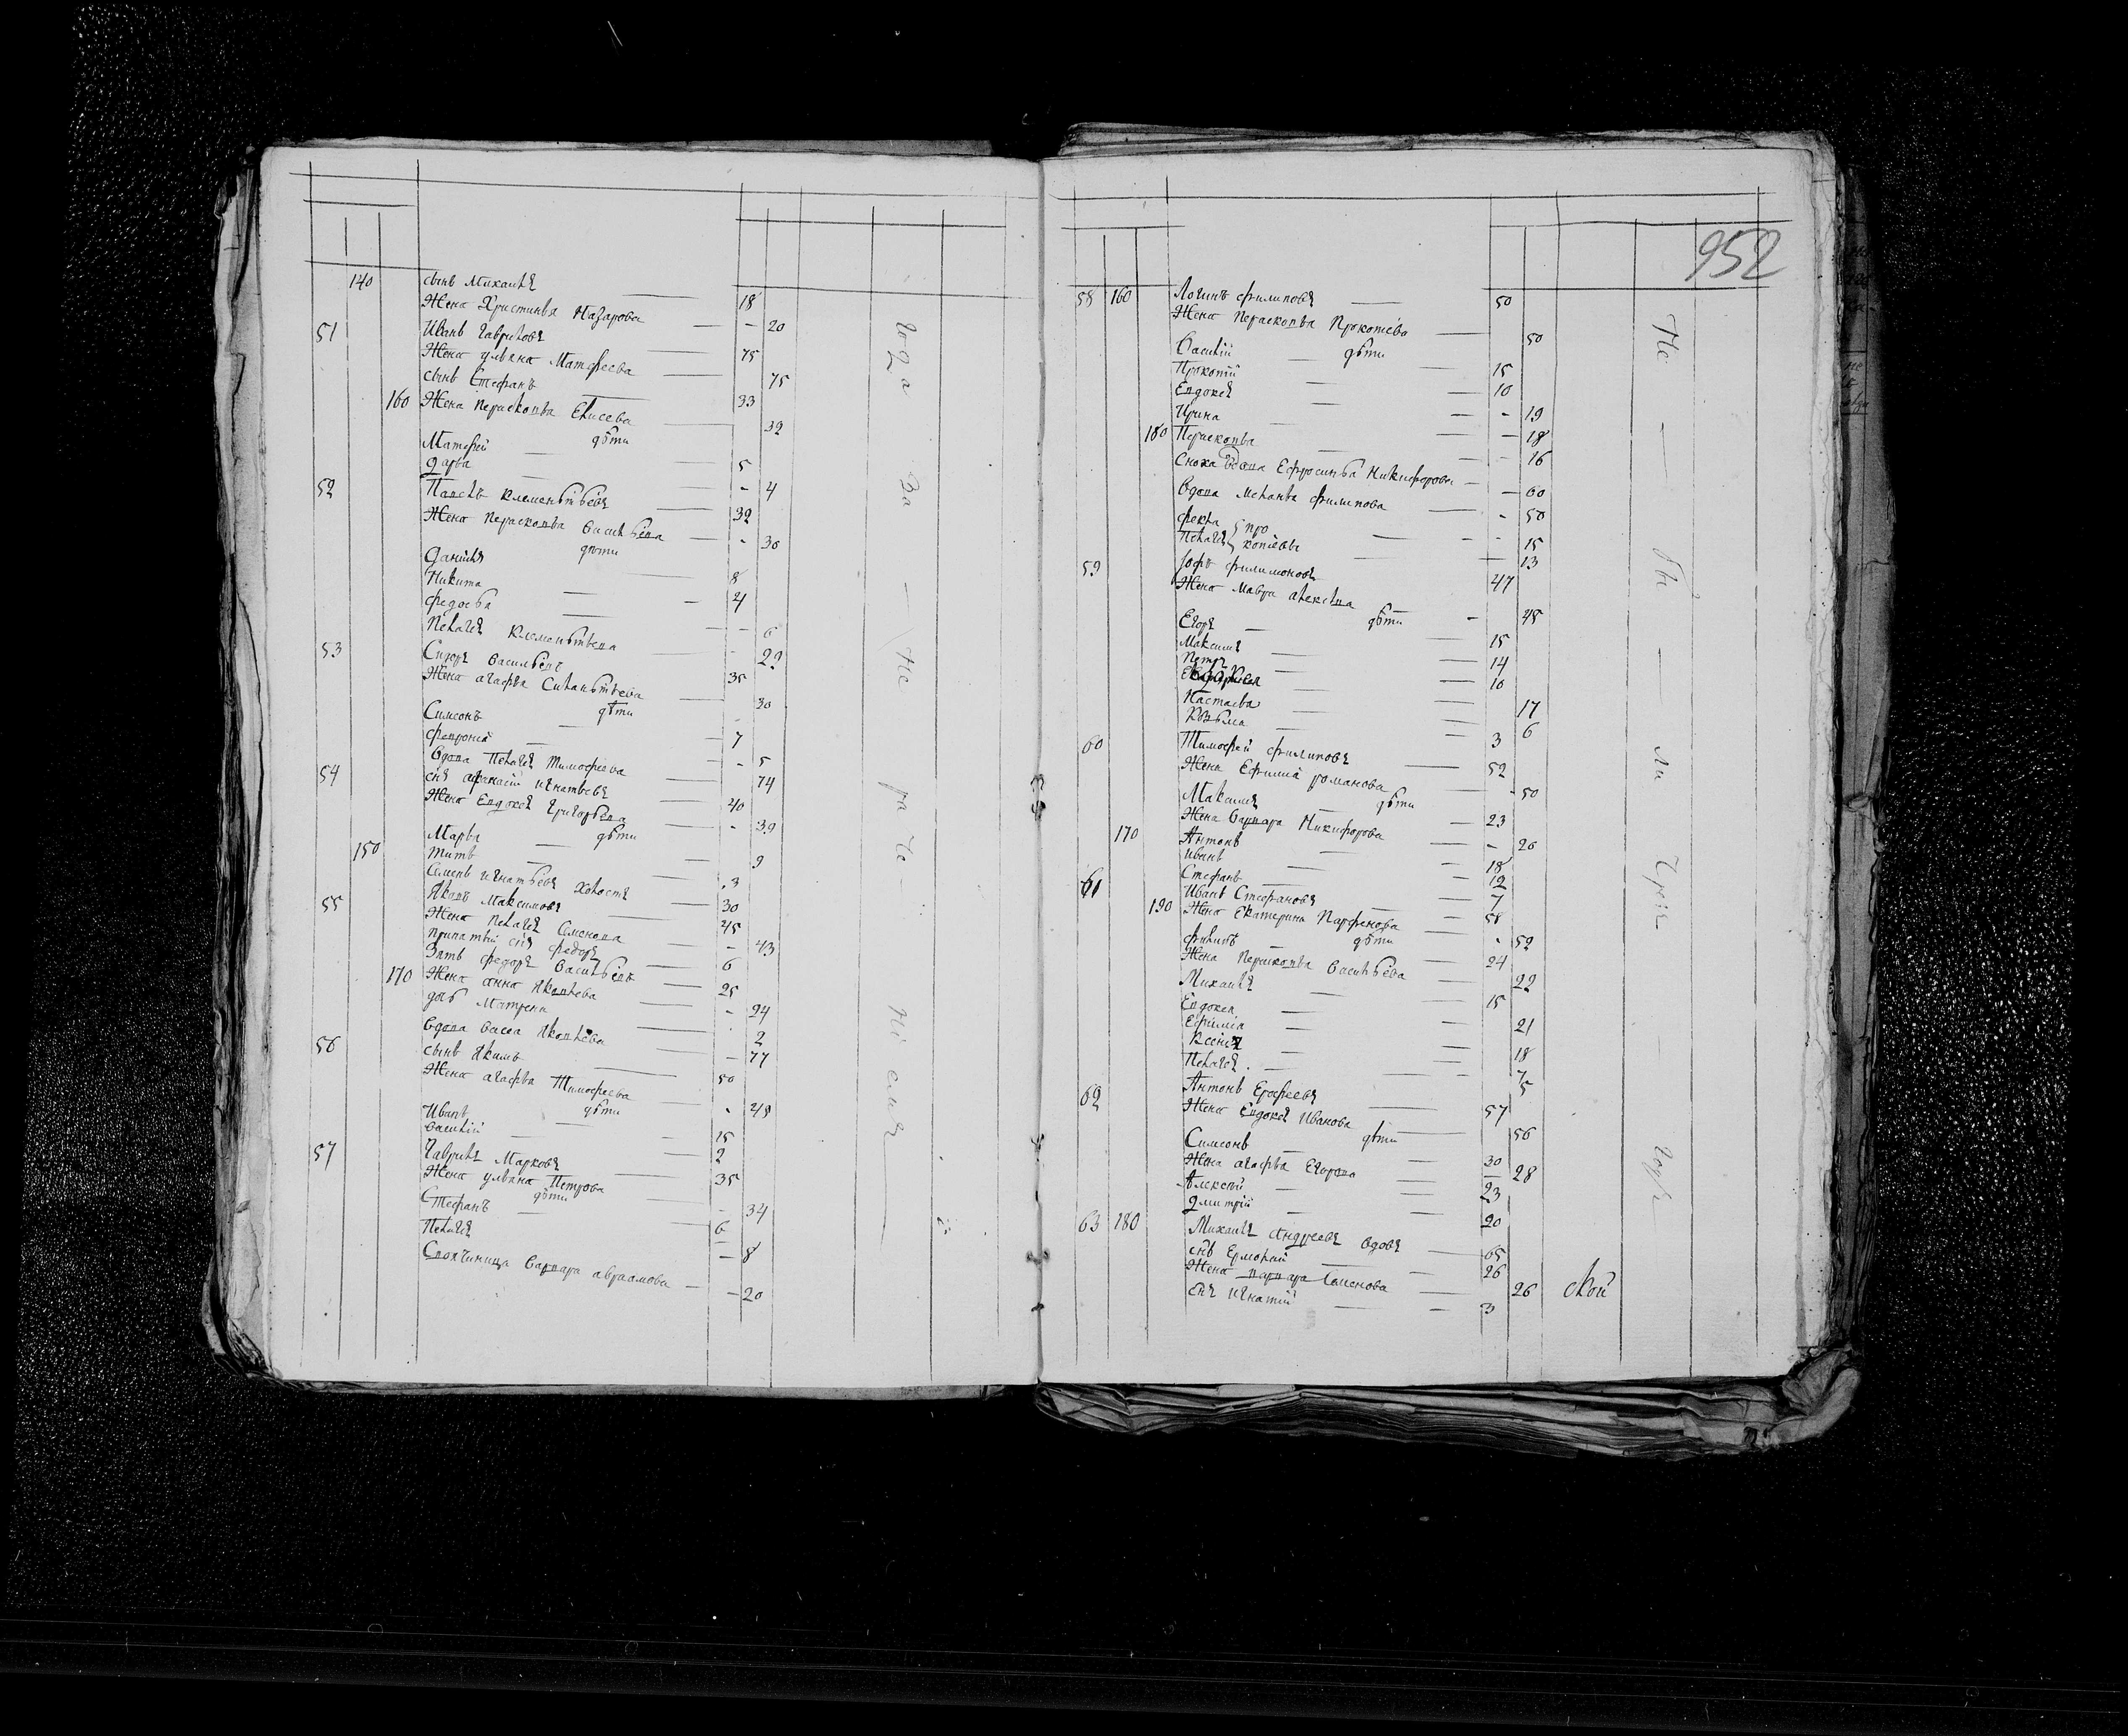 140 сынъ Михаилъ — 18
Жена Христинья Назарова — - 20
51 Иванъ Гавриловъ — 75
Жена ульяна Матфеева — 75
сынъ Стефанъ — 33
160 Жена Перасковья Елисеева — 32
дѣти
Матфей — 5
Дарья — - 4
52 Павелъ Клементьевъ — 32
Жена Перасковья Васильева — - 30
дѣти
Данила — 8
Никита — 4
Федосья — - 6
Пелагея Клементьева — - 22
53 Сидоръ Васильевъ — 35
Жена агафья Силантьева — 30
дѣти
Симеонъ — 7
Феврония — - 5
Вдова Пелагея Тимофеева — 74
54 снъ афанасiй игнатьевъ — 40
Жена Евдокея Григорьева — - 39
дѣти
Марья — 9
150 Титъ — 3
Семенъ игнатьевъ холостъ — 30
55 Яковъ Максимовъ — 45
Жена Пелагея Семенова — - 43
приматый снъ Федоръ — 6
Зять Федоръ Васильевъ — 25
170 Жена анна Яковлева — - 24
дочь Матрена — 2
Вдова Васса Яковлева — - 77
56 сынъ Якимъ — 50
Жена агафья Тимофеева — - 48
дѣти
Иванъ — 15
Василiй — 2
57 Гаврила Марковъ — 35
Жена ульяна Петрова — - 34
дѣти
Стефанъ — 6
Пелагея — - 8
Своячиница Варвара авраамова — - 20
года За — Не ра че —
952
58 160 Логинъ филиповъ — 50
Жена Перасковья Прокопiева — 50
дѣти
Василiй — 15
Прокопiй — 10
Евдокея — - 19
Ирина — - 18
180 Перасковья — - 16
Сноха вдова Ефросинья Никифорова — - 60
Вдова Меланья филипова — - 50
Фекла } про — - 15
Пелагея } копiевы — 13
59 Iофъ филимоновъ — 47
Жена Мавра алексѣва — 45
дѣти
Егоръ — 15
Максимъ — 14
Петръ — 10
— 17
Настасья — 6
Кузьма — 3
60 Тимофей филиповъ — 52
Жена Ефимия романова — - 50
дѣти
Максимъ — 23
Жена Варвара Никифорова — - 26
170 Антонъ — 18
иванъ — 12
Стефанъ — 7
61 Иванъ Стефановъ — 58
190 Жена Екатерина Парфенова — - 52
дѣти
Филипъ — 24
Жена Перасковья Васильева — 22
Михаилъ — 15
Евдокея — 21
Ефимiя — 18
Ксения — 7
Пелагея — 5
62 Антонъ Ерофеевъ — 57
Жена Евдокея Иванова — 56
дѣти
Симеонъ — 30
Жена агафья Егорова — 28
Алексѣй — 23
Дмитрiй — 20
63 180 Михаилъ Андреевъ вдовъ — 65
снъ Ермолай — 26
Жена варвара Семенова — 26
снъ игнатiй — 3
Не — бы — ли